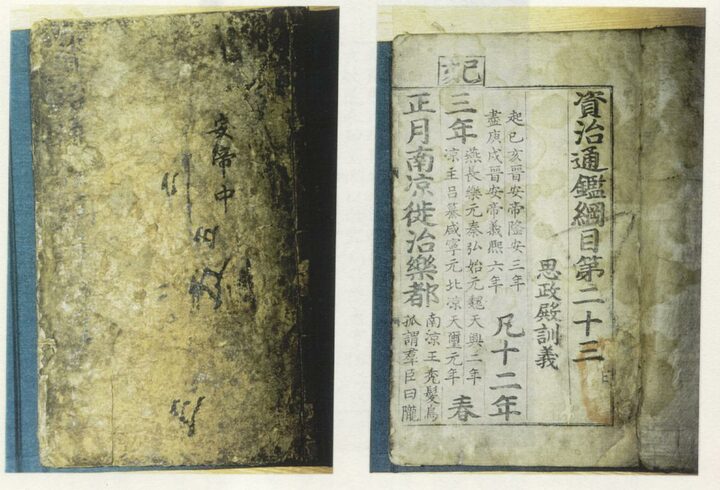 安帝中
資治通鑑綱目第二十三
思政殿訓義
起己亥晉安帝隆安三年
盡庚戌晉安帝義熙六年
凡十二年
己亥
三年
燕長樂元秦弘始元魏天興二年
凉王呂纂咸寧元北凉天璽元年
春
正月南凉徙治樂都
南凉王禿髮烏
孤謂羣臣曰隴